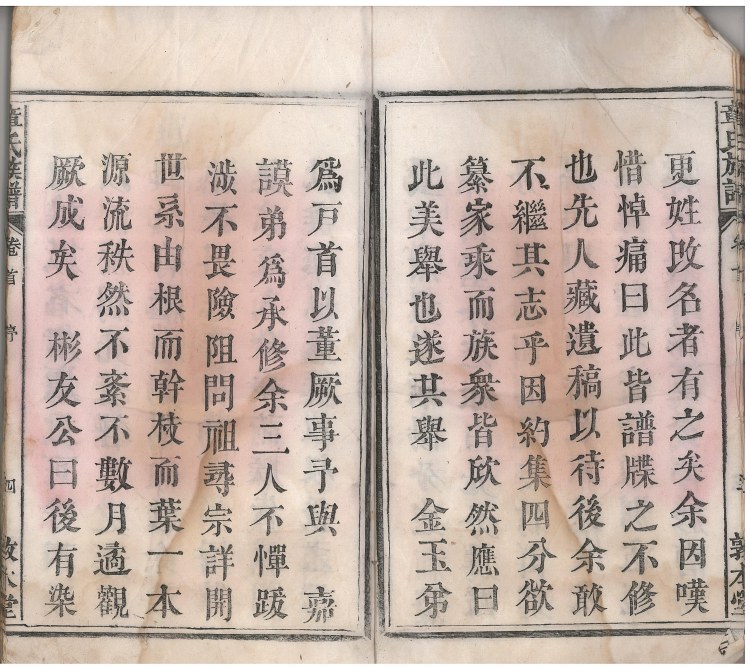 更姓改名者有之矣余因嘆
惜悼痛曰此皆譜牒之不修
也先人藏遺稿以待後余敢
不繼其志乎因約集四分欲
纂家乘而族衆皆欣然應曰
此美舉也遂共舉 金玉弟
爲戸首以董厥事予與 嘉
謨弟爲承修余三人不憚踐
涉不畏險阻問祖尋宗詳開
世系由根而幹枝而葉一本
源流秩然不紊不數月遹觀
厥成矣 彬友公曰後有染
童氏族譜
卷首
序
四
敦本堂